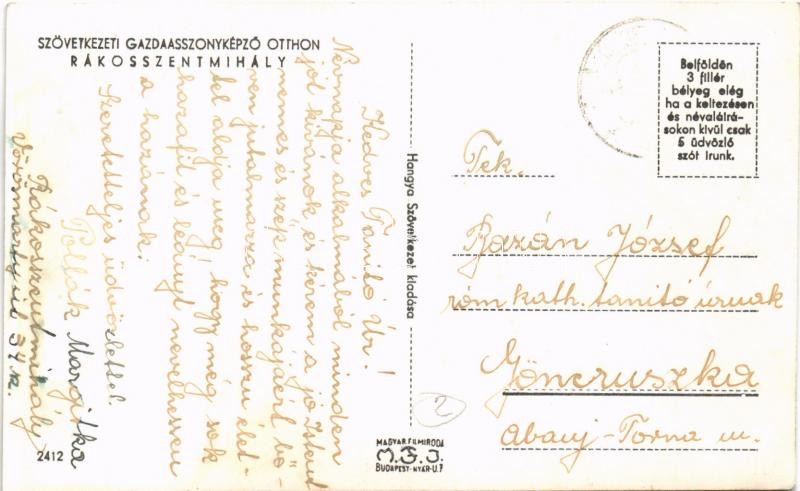 SZÖVETKEZETI GAZDAASSZONYKÉPZŐ OTTHON
RÁKOSSZENTMIHÁLY
Kedves Tanító Úr!
Névnapja alkalmából minden
jót kívánok és kérem a jó Istent
nemes és szép munkájáért bő-
ven jutalmazza és hosszú élet-
tel áldja meg, hogy még sok
hazafit és leányt nevelhessen
a hazának.
Szeretetteljes üdvözlettel:
Pollák Margitka
Rákosszentmihály
Vörösmarty út 34 sz.
2412
Hangya Szövetkezet kiadása
MAGYAR FILMIRODA
M.F.I.
BUDAPEST-NYÁR-U.7
Belföldön
3 fillér
bélyeg elég
ha a keltezésen
és névaláírá-
sokon kívül csak
5 üdvözlő
szót írunk.
Tek.
Bazán József
róm kath. tanító úrnak
Göncruszka
Abauj-Torna m.
2